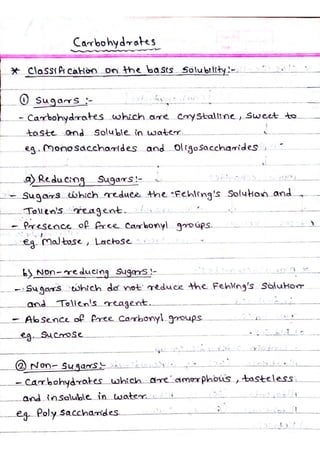 Carbohydrates
* Classification on the basis Solubility:-
① Sugars :-
- Carbohydrates which are crystalline, sweet to
taste and soluble in water.
eg. Monosaccharides and Oligosaccharides
a) Reducing Sugars:-
- Sugars which reduce the Fehling's Solution and
Tollen's reagent.
- Presence of free carbonyl groups.
eg. Maltose, Lactose
b) Non-reducing Sugars :-
- Sugars which do not reduce the Fehling's Solution
and Tollen's reagent.
- Absence of free carbonyl groups
eg. Sucrose
② Non-Sugars:-
- Carbohydrates which are amorphous, tasteless
and insoluble in water
eg. Poly saccharides